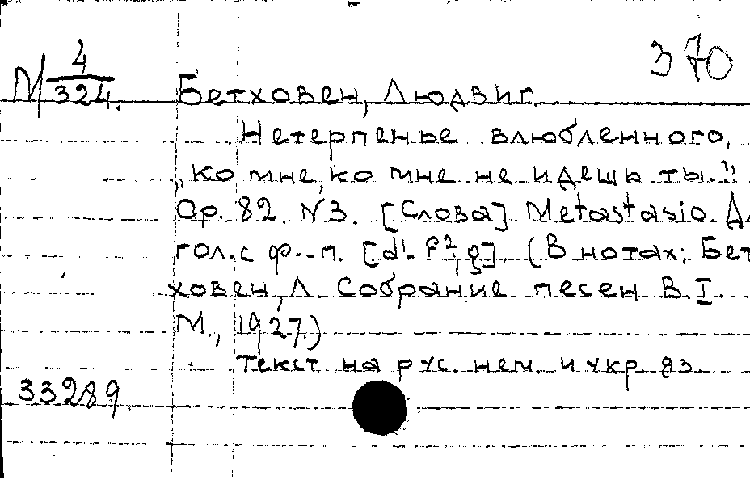 370
М 4/324. Бетховен, Людвиг.
Нетерпенье влюбленного,
„Ко мне, ко мне не идешь ты."
Op. 82. N3. [Слова] Metastasio. Дл
гол. с ф.-п. (В нотах: Бет
ховен, Л. Собрание песен В. I.
М., 1927.)
Текст на рус. нем. и укр яз.
33289.